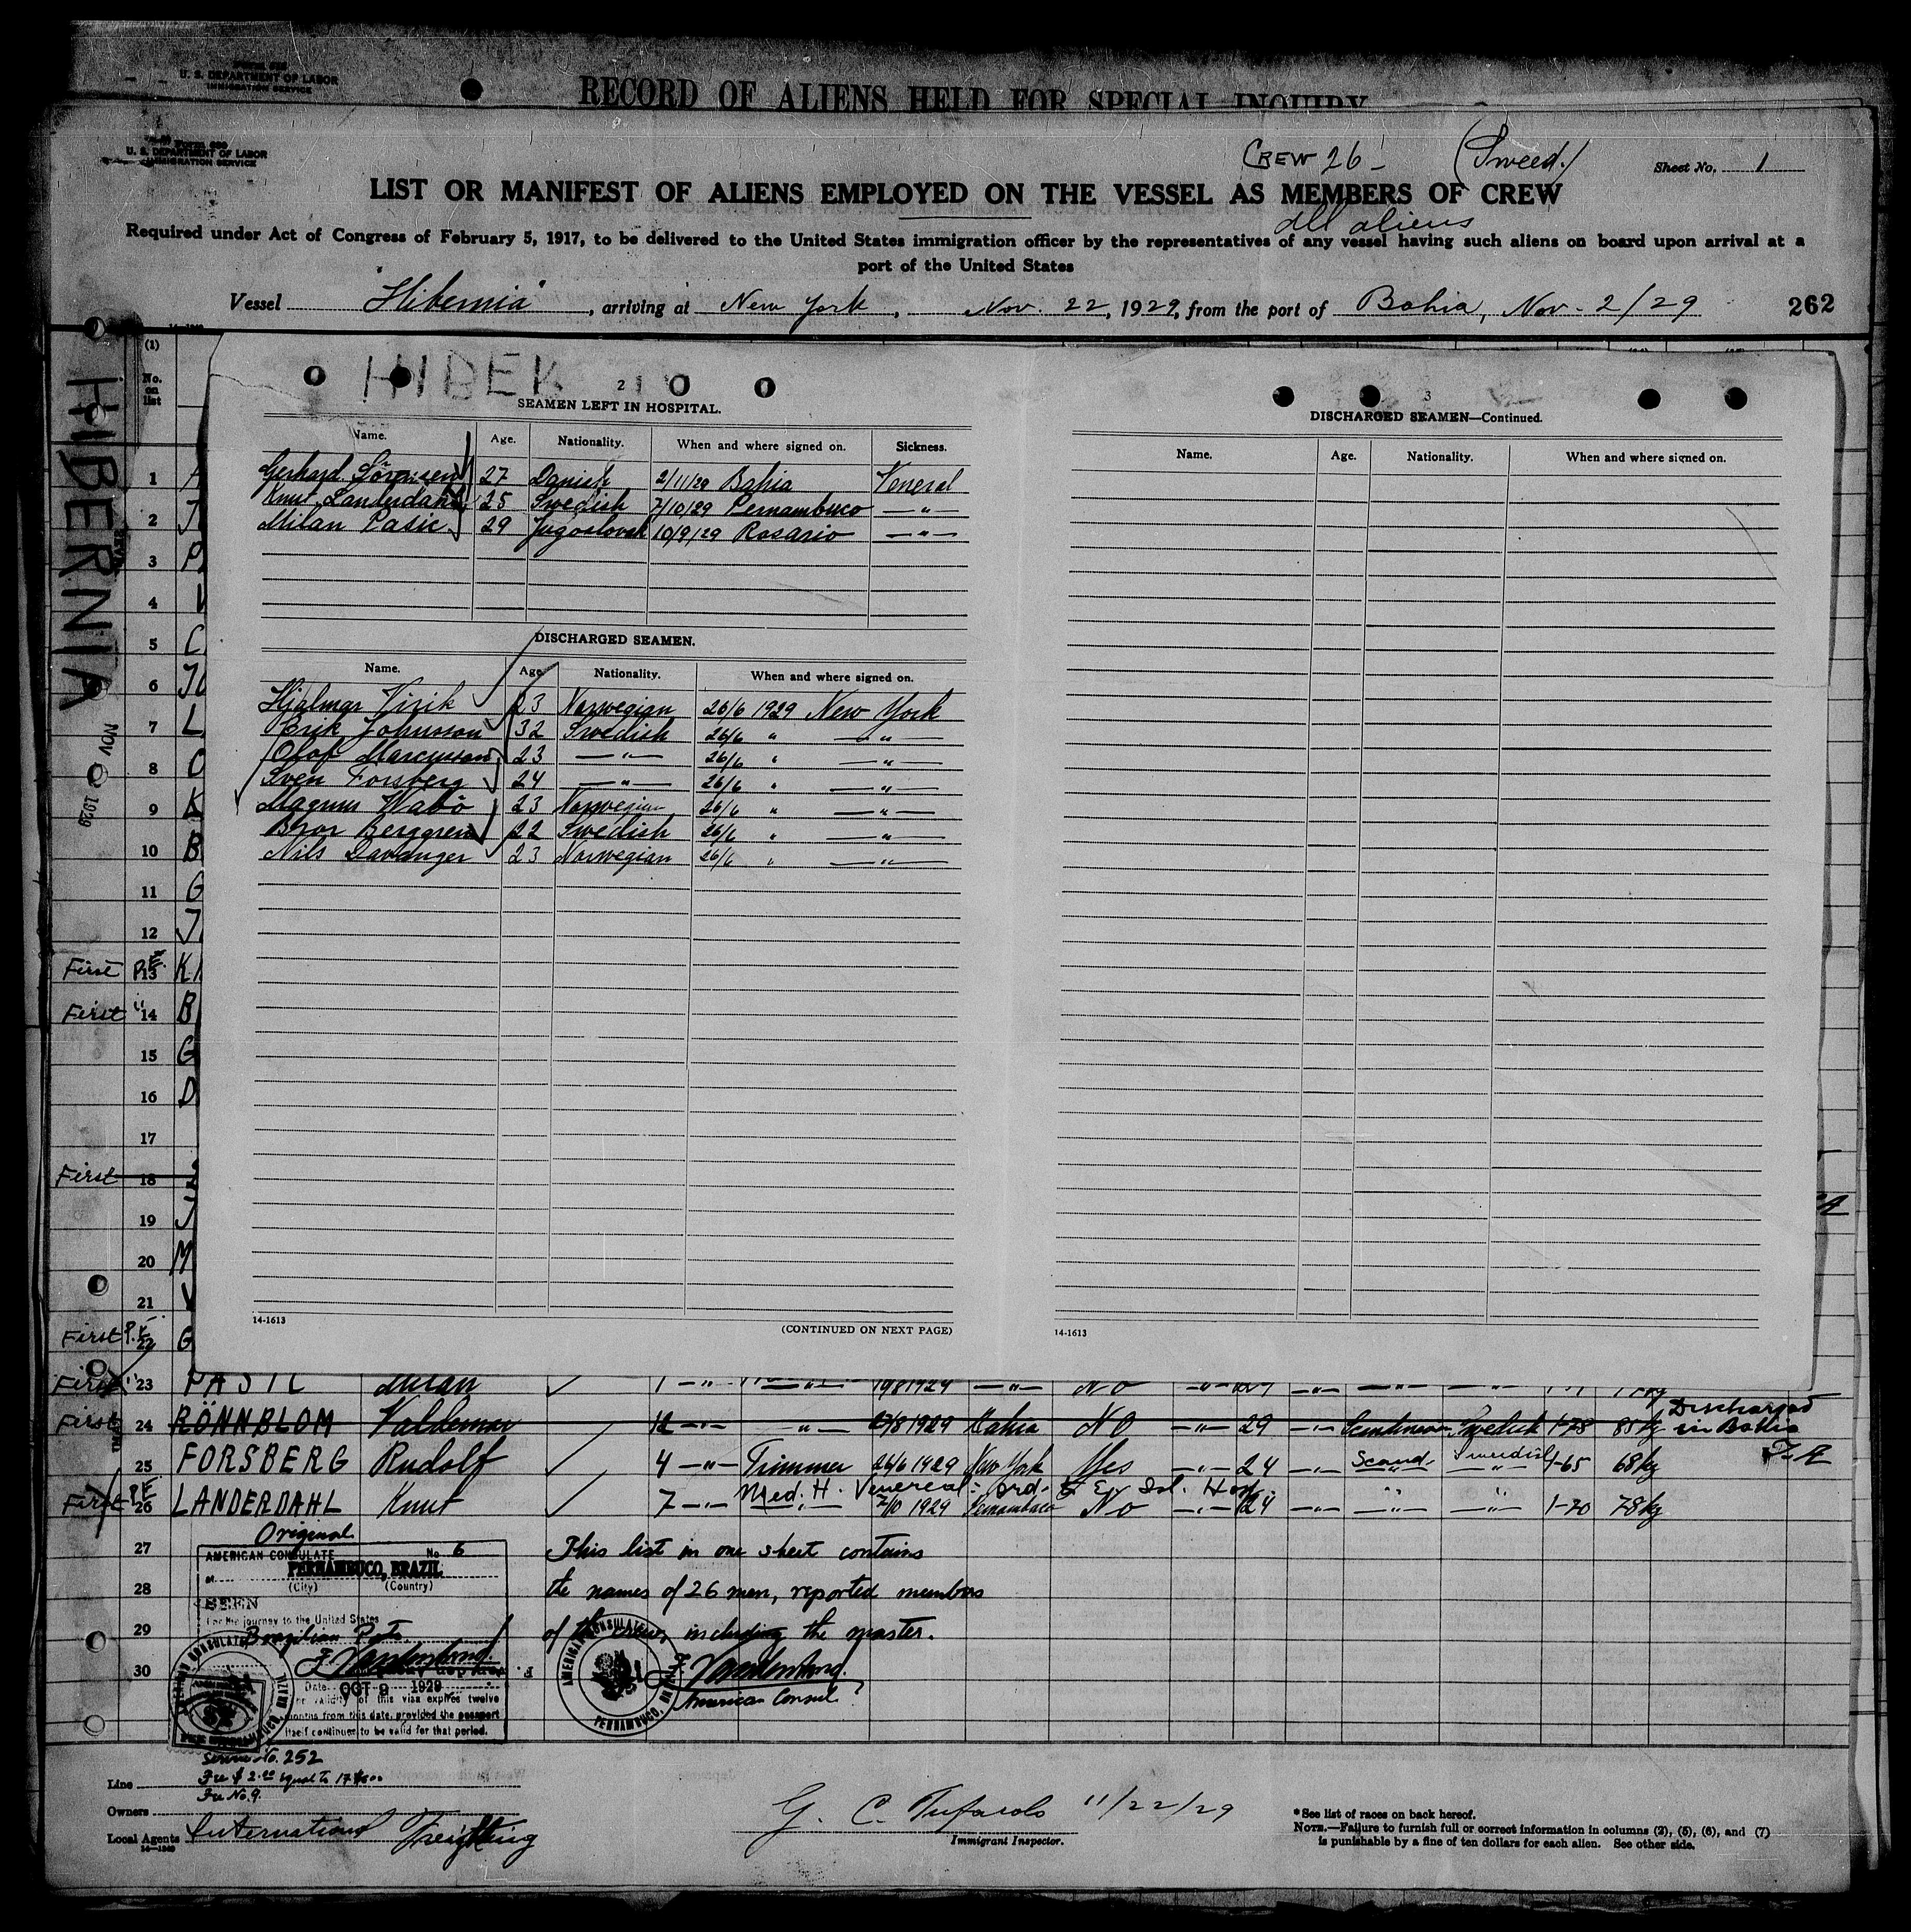 U. S. DEPARTMENT OF LABOR
IMMIGRATION SERVICE
RECORD OF ALIENS HELD FOR SPECIAL INQUIRY
U. S. DEPARTMENT OF LABOR
IMMIGRATION SERVICE
CREW 26 - (Sweed.) Sheet No. 1
LIST OR MANIFEST OF ALIENS EMPLOYED ON THE VESSEL AS MEMBERS OF CREW
all aliens
Required under Act of Congress of February 5, 1917, to be delivered to the United States immigration officer by the representatives of any vessel having such aliens on board upon arrival at a
port of the United States
Vessel "Hibernia", arriving at New York, Nov. 22, 1929, from the port of Bahia, Nov. 2/29 262
HIBERNIA
NOV 1929
(1)
No. on list
HIBER
2
SEAMEN LEFT IN HOSPITAL.
Name. Age. Nationality. When and where signed on. Sickness.
Gerhard Sörensen 27 Danish 2/11/29 Bahia Veneral
Knut Landerdahl 25 Swedish 7/10/29 Pernambuco —"—
Milan Pasic 29 Jugoslovak 10/9/29 Rosario —"—
DISCHARGED SEAMEN.
Name. Age. Nationality. When and where signed on.
Hjalmar Virik 23 Norwegian 26/6 1929 New York
Erik Johnsson 32 Swedish 26/6 " —"—
Olof Marcusson 23 —"— 26/6 " —"—
Sven Forsberg 24 —"— 26/6 " —"—
Magnus Wabö 23 Norwegian 26/6 " —"—
Bror Berggren 22 Swedish 26/6 " —"—
Nils Davanger 23 Norwegian 26/6 " —"—
14-1613
(CONTINUED ON NEXT PAGE)
3
DISCHARGED SEAMEN—Continued.
Name. Age. Nationality. When and where signed on.
14-1613
1 A
2 J
3 P
4
5 C
6 JO
7 L
8 O
9 K
10 B
11 G
12 J
First P.E. 13 K
First " 14 B
15 G
16 D
17
First 18
19 J
20 M
21 V
First P.E. 22 G
First " 23 PASIC Milan 1 —"— —"— —"— No —"— —"— —"— —"—
First 24 RÖNNBLOM Valdemar —"— " 1929 Bahia NO —"— 29 —"— Swedish 1-78 85 kg Discharged in Bahia
25 FORSBERG Rudolf 4 —"— Trimmer 26/6 1929 New York Yes —"— 24 —"— Scand. Swedish 1-65 68 kg
Med. H. Venereal
First P.E. 26 LANDERDAHL Knut 7 —"— 7/10 1929 Pernambuco No —"— 24 —"— —"— —"— 1-70 78 kg
27
28
29
30
Original
AMERICAN CONSULATE No 6
at PERNAMBUCO, BRAZIL
(City) (Country)
SEEN
For the journey to the United States
Date OCT 9 1929
The validity of this visa expires twelve
months from this date, provided the passport
itself continues to be valid for that period.
AMERICAN CONSULATE PERNAMBUCO, BRAZIL
Service No. 252
Fee No. 9.
This list in one sheet contains
the names of 26 men, reported members
of the crew, including the master.
American Consul
AMERICAN CONSULATE PERNAMBUCO
Line
Owners
Local Agents International Freighting
G. C. Tufarolo 11/22/29
Immigrant Inspector.
* See list of races on back hereof.
NOTE.—Failure to furnish full or correct information in columns (2), (5), (6), and (7)
is punishable by a fine of ten dollars for each alien. See other side.